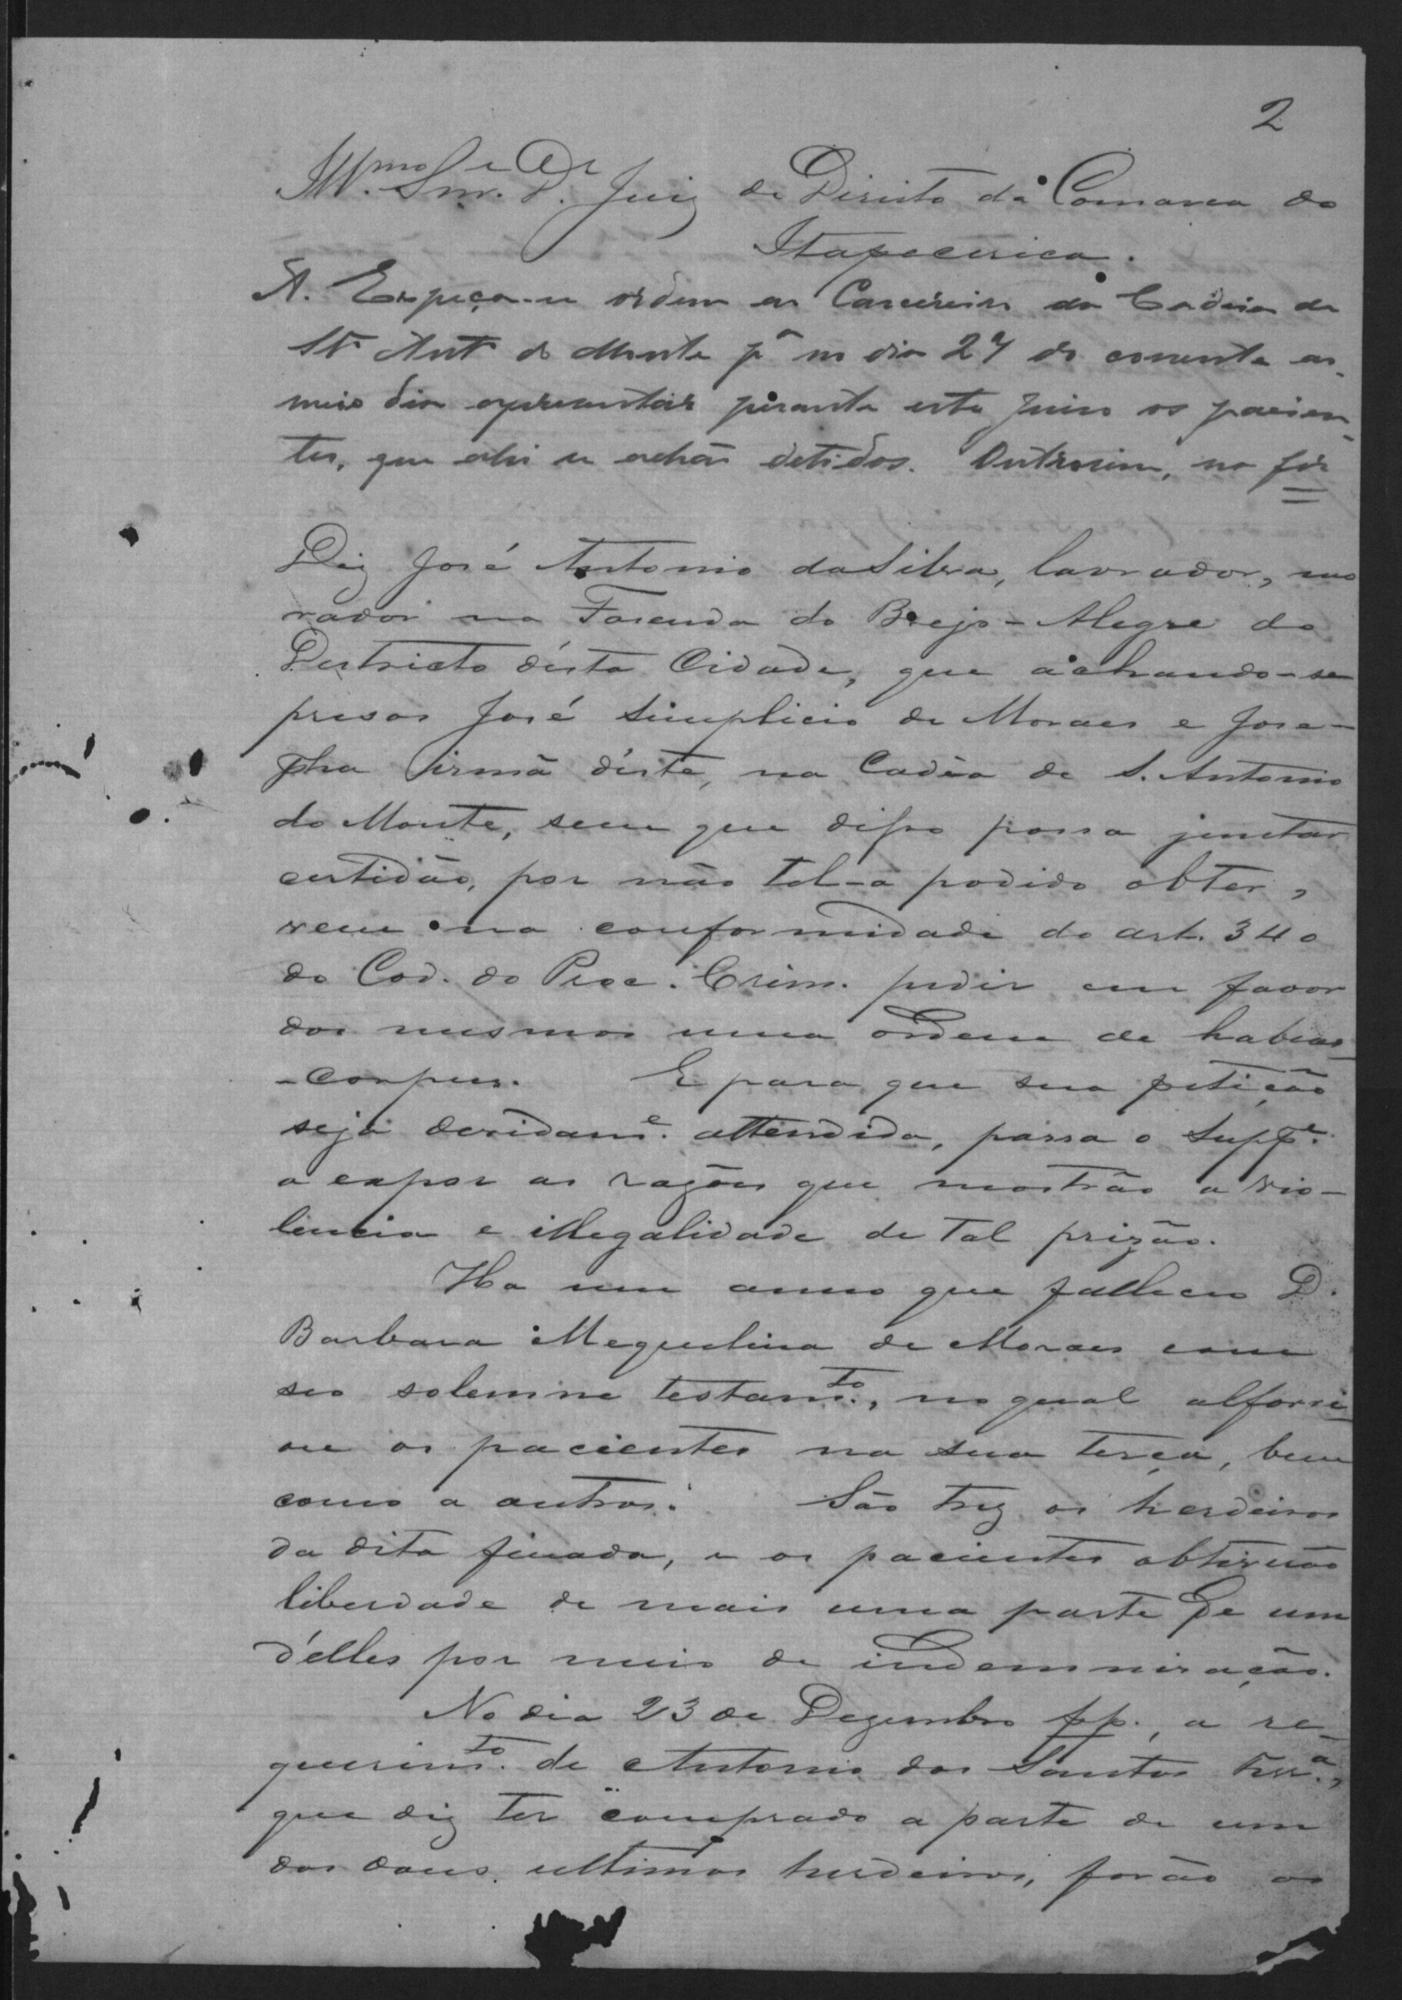 2
Ill.mo Snr. Dr. Juiz de Direito da Comarca do
Itapecerica.
A. Expeça-se ordem ao Carcereiro da Cadeia de
Sto Anto do Monte pa no dia 27 do corrente ao
meio dia apresentar perante este Juizo os pacien-
tes, que ahi se achão detidos. Outrosim, no
Diz José Antonio da Silva, lavrador, mo
rador na Fazenda do Brejo-Alegre do
Destricto désta Cidade, que achando-se
presos José Simplicio de Moraes e Jose-
pha irmã déste, na Cadêa de S. Antonio
do Monte, sem que disso possa junctar
certidão, por não tel-a podido obter,
vem na conformidade do art. 340
do Cod. do Proc. Crim. pedir em favor
dos mesmos uma ordem de habeas
-corpus. E para que sua petição
seja devidame. attendida, passa o Suppe.
a expor as razões que mostrão a vio-
lencia e illegalidade de tal prizão.
Ha um anno que falleceo D.
Barbara Mequelina de Moraes com
seo solemne testamto., no qual alforri-
ou os pacientes na sua terça, bem
como a outros. São trez os herdeiros
da dita finada, e os pacientes obtiverão
liberdade de mais uma parte de um
d'elles por meio de indemnisação.
No dia 23 de Dezembro pp., a re-
querimto. de Antonio dos Santos Ferra.,
que diz ter comprado a parte de um
dos dous ultimos herdeiros, forão os